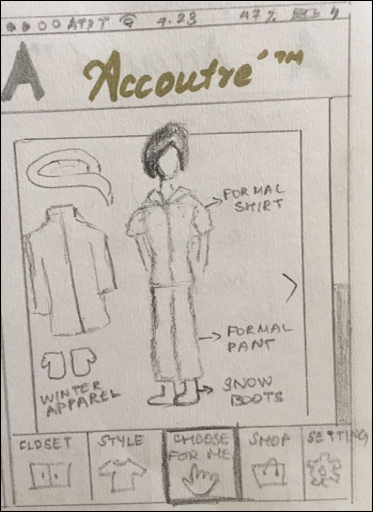 AT&T 4.23 47%
A Accoutré™
FORMAL
SHIRT
FORMAL
PANT
SNOW
BOOTS
WINTER
APPAREL
CLOSET STYLE CHOOSE
FOR ME SHOP SETTING